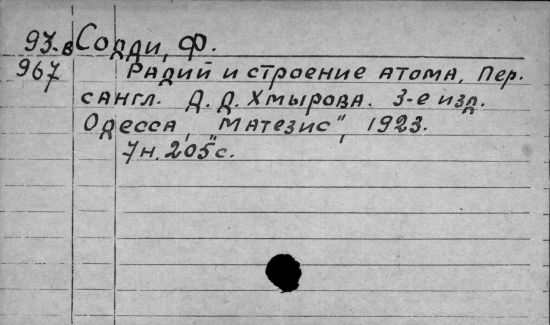 93-в Содди, Ф.
967 Радий и строение атома. Пер.
сангл. Д. Д. Хмырова. 3-е изд.
Одесса, "Матезис", 1923.
7н. 205с.